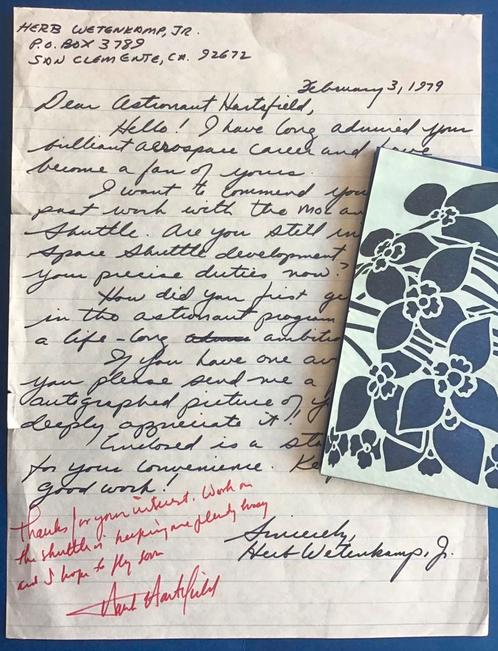 HERB WETENKAMP, JR.
P.O. BOX 3789
SAN CLEMENTE, CA. 92672
February 3, 1979
Dear Astronaut Hartsfield,
Hello! I have long admired your
brilliant aerospace career and have
become a fan of yours.
I want to commend you
past work with the MOL an
Shuttle. Are you still in
space shuttle development
your precise duties now?
How did you first ge
in the astronaut program
a life-long ambitio
If you have one av
you please send me a
autographed picture of y
deeply appreciate it!
Enclosed is a sta
for your convenience. Kee
good work!
Thanks for your interest. Work on
the shuttle is keeping me plenty busy
and I hope to fly soon
Hank Hartsfield
Sincerely,
Herb Wetenkamp, Jr.